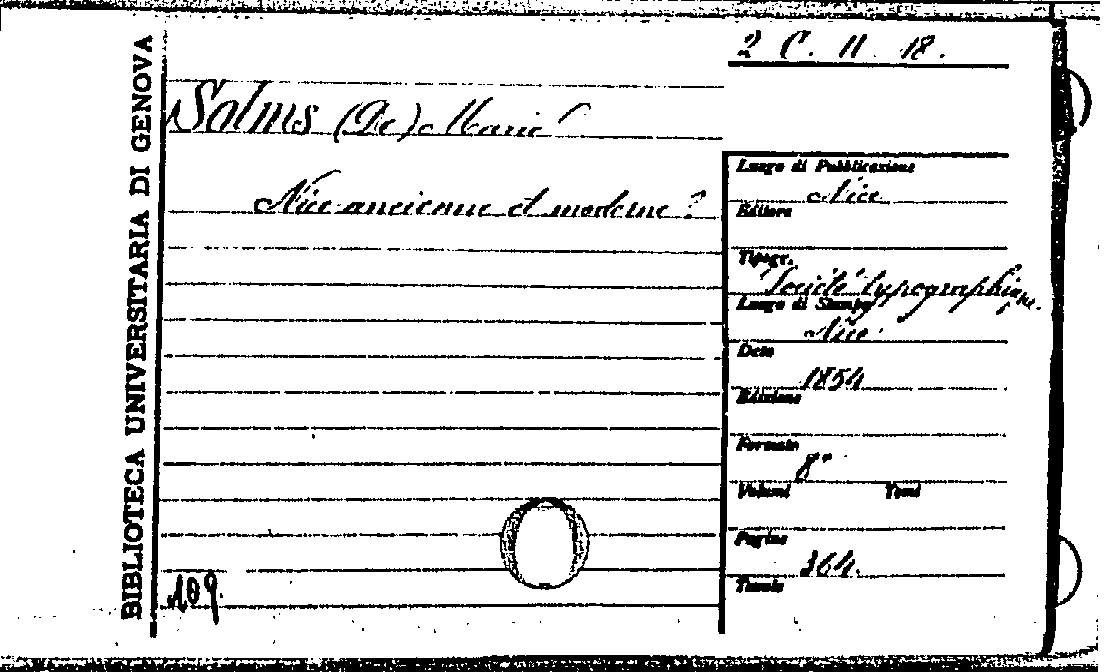 BIBLIOTECA UNIVERSITARIA DI GENOVA
2 C. 11. 18.
Solms (De) Marie
Nice ancienne et moderne ?
Luogo di Pubblicazione
Nice
Editore
Tipogr.
Société typographique.
Luogo di Stampa
Nice.
Data
1854
Edizione
Formato
8°
Volumi Tomi
Pagine
364.
Tavole
109.